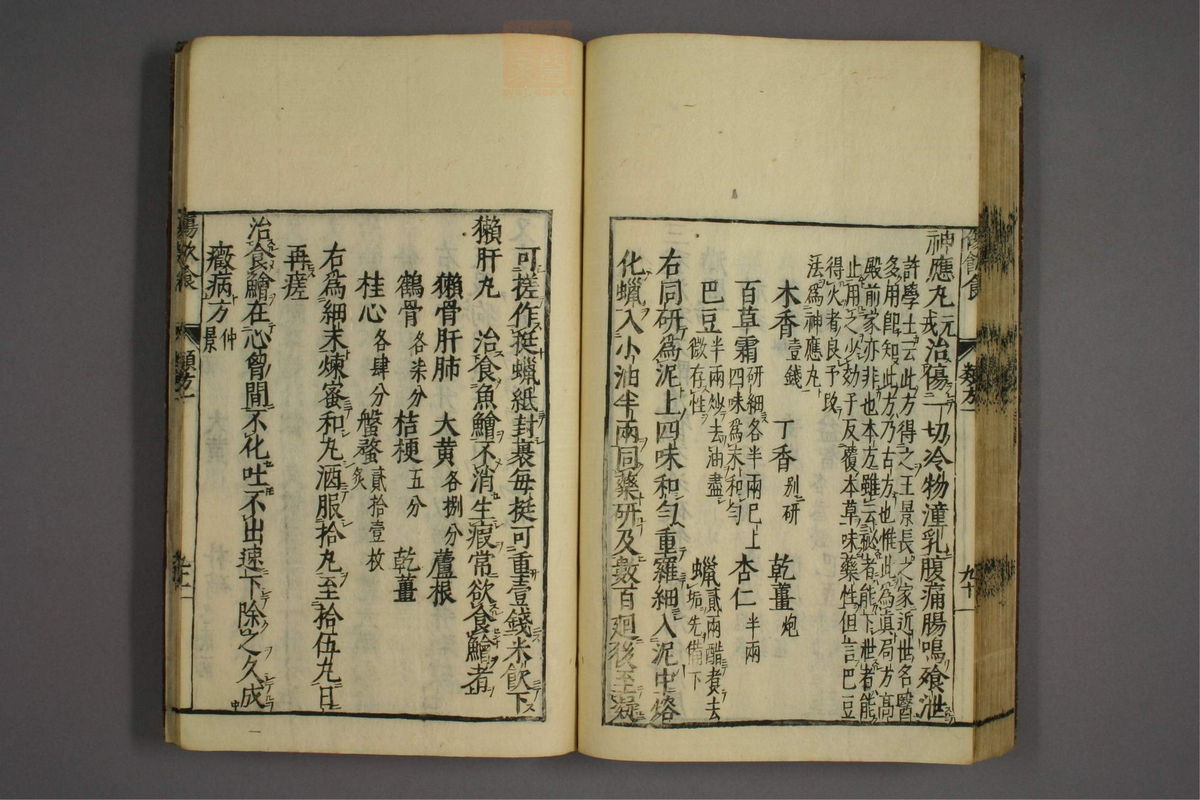 神應丸元戎治傷一切冷物潼乳腹痛腸鳴飱泄
許學士云此方得之王景長之家近世名醫
多用即知此方乃古方也惟此為真局方高
殿前家亦非也本方雖云祕者能下泄者能
止用之少効予反覆本草味藥性但言巴豆
得火者良予改
法為神應丸
木香壹錢 丁香别研 乾薑炮
百草霜研細各半兩巳上四味為末和勻 杏仁半兩
巴豆半兩炒去油盡微存性 蠟貳兩醋煮去垢先備下
右同研為泥上四味和勻重羅細入泥中熔
化蠟入小油半兩同藥研及數百廻後至凝
可搓作挺蠟紙封裹每挺可重壹錢米飲下
獺肝丸 治食魚鱠不消生瘕常欲食鱠者
獺骨肝肺 大黄各捌分 蘆根
鶴骨各柒分 桔梗五分 乾薑
桂心各肆分 螌蝥貳拾壹枚炙
右為細末煉蜜和丸酒服拾丸至拾伍丸日
再瘥
治食鱠在心曾間不化吐不出速下除之久成
癥病方仲景
傷飲食 類方